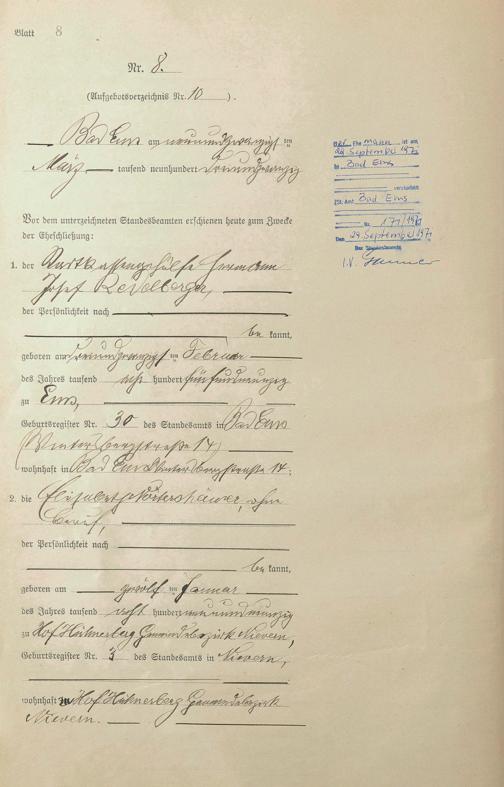 Blatt 8
Nr. 8.
(Aufgebotsverzeichnis Nr. 10).
Bad Ems am neunundzwanzigsten
März tausend neunhundert dreiundzwanzig
Vor dem unterzeichneten Standesbeamten erschienen heute zum Zwecke
der Eheschließung:
1. der Stadtkassengehülfe Hermann
Josef
der Persönlichkeit nach
be kannt,
geboren am dreiundzwanzigsten Februar
des Jahres tausend acht hundert fünfundneunzig
zu Ems,
Geburtsregister Nr. 30 des Standesamts in Bad Ems
(Wintersbergstraße 14)
wohnhaft in Bad Ems Wintersbergstraße 14;
2. die Elisabeth, ohne
Beruf,
der Persönlichkeit nach
be kannt,
geboren am zwölften Januar
des Jahres tausend acht hundert neunundneunzig
zu Hof Hühnerberg Gemeindebezirk Nievern,
Geburtsregister Nr. 3 des Standesamts in Nievern,
wohnhaft in Hof Hühnerberg Gemeindebezirk
Nievern.
Ehemann ist am
29. September 1971
in Bad Ems
verstorben
St. Amt Bad Ems
Nr. 171/1971
Den 29. September 1971
Der Standesbeamte
I.V.